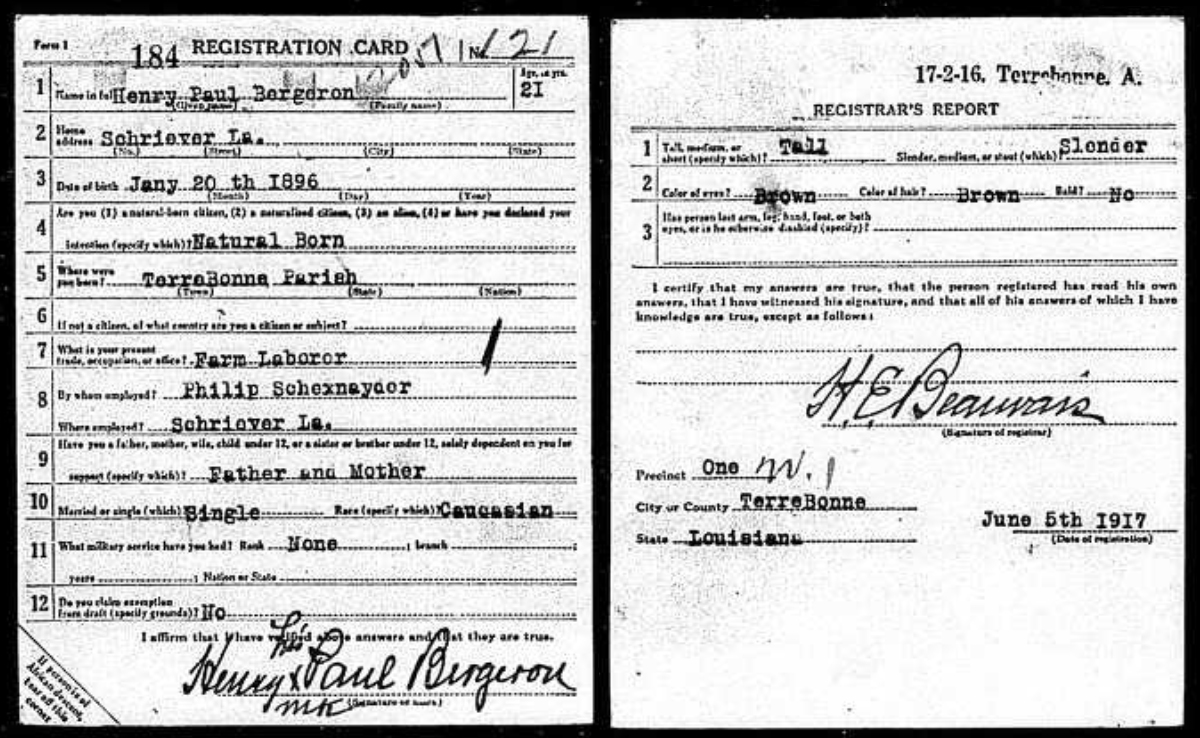 Form 1
184 REGISTRATION CARD No. 121
1 Name in full Henry Paul Bergeron Age, in yrs. 21
(Given name) (Family name)
2 Home address Schriever La.
(No.) (Street) (City) (State)
3 Date of birth Jany 20 th 1896
(Month) (Day) (Year)
4 Are you (1) a natural-born citizen, (2) a naturalized citizen, (3) an alien, (4) or have you declared your
intention (specify which)? Natural Born
5 Where were you born? TerreBonne Parish
(Town) (State) (Nation)
6 If not a citizen, of what country are you a citizen or subject?
7 What is your present trade, occupation, or office? Farm Laboror
8 By whom employed? Philip Schexnaydor
Where employed? Schriever La.
9 Have you a father, mother, wife, child under 12, or a sister or brother under 12, solely dependent on you for
support (specify which)? Father and Mother
10 Married or single (which)? Single Race (specify which)? Caucasian
11 What military service have you had? Rank None ; branch ;
years ; Nation or State
12 Do you claim exemption from draft (specify grounds)? No
I affirm that I have verified above answers and that they are true.
His
Henry x Paul Bergeron
mk (Signature or mark)
If person is of
African descent,
tear off this
corner
17-2-16. Terrebonne. A.
REGISTRAR'S REPORT
1 Tall, medium, or short (specify which)? Tall Slender, medium, or stout (which)? Slender
2 Color of eyes? Brown Color of hair? Brown Bald? No
3 Has person lost arm, leg, hand, foot, or both
eyes, or is he otherwise disabled (specify)?
I certify that my answers are true, that the person registered has read his own
answers, that I have witnessed his signature, and that all of his answers of which I have
knowledge are true, except as follows:
H. E. Beauvais
(Signature of registrar)
Precinct One W. 1
City or County TerreBonne
State Louisiana
June 5th 1917
(Date of registration)